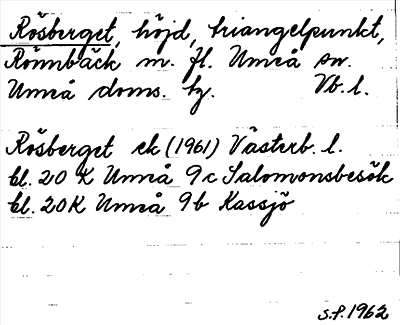 Rösberget, höjd, triangelpunkt,
Rönnbäck m. fl. Umeå sn.
Umeå doms. hg. Vb. l.
Rösberget ek (1961) Västerb. l.
bl. 20 K Umeå 9 c Salomonsbesök
bl. 20K Umeå 9b Kassjö
S.P. 1962